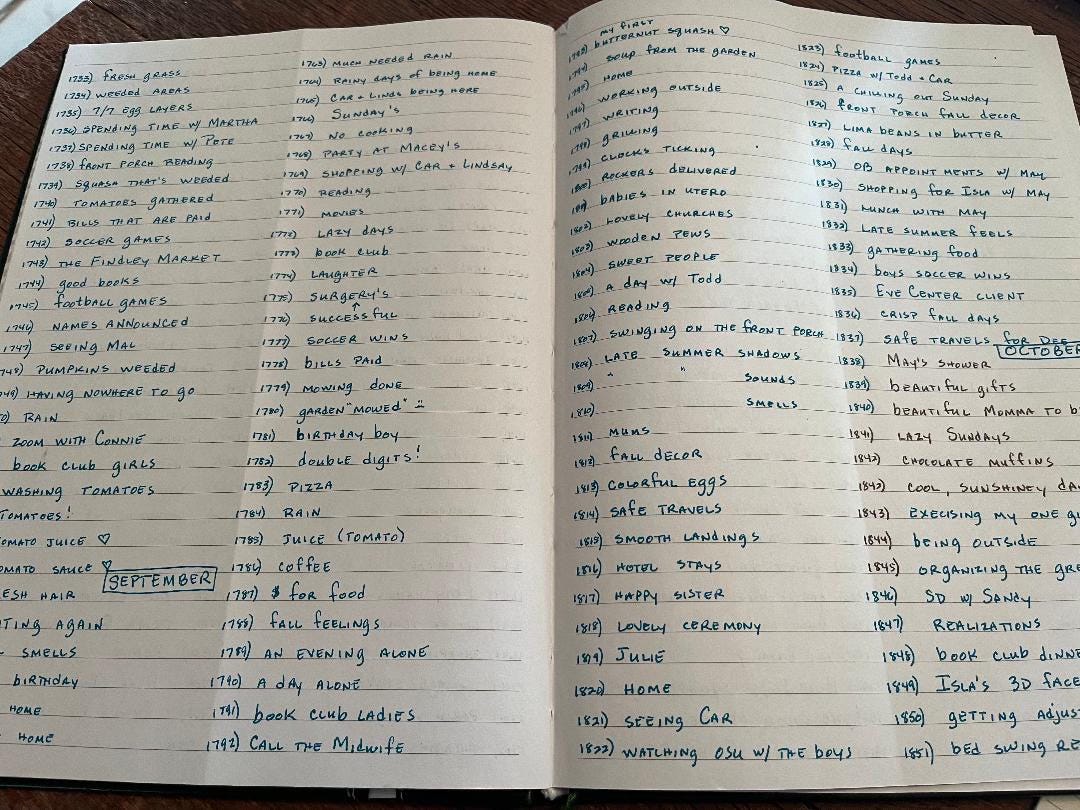 1733) FRESH GRASS
1734) WEEDED AREAS
1735) 7/7 EGG LAYERS
1736) SPENDING TIME W/ MARTHA
1737) SPENDING TIME W/ PETE
1738) FRONT PORCH READING
1739) SQUASH THAT'S WEEDED
1740) TOMATOES GATHERED
1741) BILLS THAT ARE PAID
1742) SOCCER GAMES
1743) THE FINDLEY MARKET
1744) good books
1745) football GAMES
1746) NAMES ANNOUNCED
1747) SEEING MAL
1748) PUMPKINS WEEDED
1749) HAVING NOWHERE TO GO
RAIN
ZOOM WITH CONNIE
book club GIRLS
WASHING TOMATOES
TOMATOES!
TOMATO JUICE ♡
TOMATO SAUCE ♡
SEPTEMBER
HAIR
AGAIN
SMELLS
BIRTHDAY
HOME
HOME
1763) MUCH NEEDED RAIN
1764) RAINY DAYS OF BEING HOME
1765) CAR + LINDS BEING HERE
1766) SUNDAY'S
1767) NO COOKING
1768) PARTY AT MACEY'S
1769) SHOPPING W/ CAR + LINDSAY
1770) READING
1771) MOVIES
1772) LAZY DAYS
1773) book club
1774) LAUGHTER
1775) SURGERY'S
↑
1776) SUCCESSFUL
1777) SOCCER WINS
1778) BILLS PAID
1779) MOWING DONE
1780) GARDEN "MOWED"
1781) BIRTHDAY BOY
1782) double digits!
1783) PIZZA
1784) RAIN
1785) JUICE (TOMATO)
1786) COFFEE
1787) $ for food
1788) FALL FEELINGS
1789) AN EVENING ALONE
1790) A day ALONE
1791) book club LADIES
1792) CALL THE MIDWIFE
MY FIRST
1793) BUTTERNUT SQUASH ♡
1794) SOUP FROM THE GARDEN
1795) HOME
1796) WORKING OUTSIDE
1797) WRITING
1798) GRILLING
1799) CLOCKS TICKING
1800) ROCKERS DELIVERED
1801) BABIES IN UTERO
1802) LOVELY CHURCHES
1803) WOODEN PEWS
1804) SWEET PEOPLE
1805) A DAY W/ Todd
1806) READING
1807) SWINGING ON THE FRONT PORCH
1808) LATE SUMMER SHADOWS
1809) " " SOUNDS
1810) SMELLS
1811) MUMS
1812) FALL DECOR
1813) COLORFUL EGGS
1814) SAFE TRAVELS
1815) SMOOTH LANDINGS
1816) HOTEL STAYS
1817) HAPPY SISTER
1818) LOVELY CEREMONY
1819) JULIE
1820) HOME
1821) SEEING CAR
1822) WATCHING OSU W/ THE BOYS
1823) football GAMES
1824) PIZZA W/ Todd + CAR
1825) A CHILLING OUT SUNDAY
1826) FRONT PORCH FALL DECOR
1827) LIMA BEANS IN BUTTER
1828) FALL DAYS
1829) OB APPOINTMENTS W/ MAY
1830) SHOPPING FOR ISLA W/ MAY
1831) LUNCH WITH MAY
1832) LATE SUMMER FEELS
1833) GATHERING FOOD
1834) BOYS SOCCER WINS
1835) EVE CENTER CLIENT
1836) CRISP FALL DAYS
1837) SAFE TRAVELS for DEE
OCTOBER
1838) MAY'S SHOWER
1839) BEAUTIFUL GIFTS
1840) BEAUTIFUL MOMMA TO
1841) LAZY SUNDAYS
1842) CHOCOLATE MUFFINS
1842) COOL, SUNSHINEY
1843) EXECISING MY ONE
1844) BEING OUTSIDE
1845) ORGANIZING THE
1846) SD W/ SANDY
1847) REALIZATIONS
1848) book club
1849) ISLA'S 3D FACE
1850) GETTING
1851) BED SWING